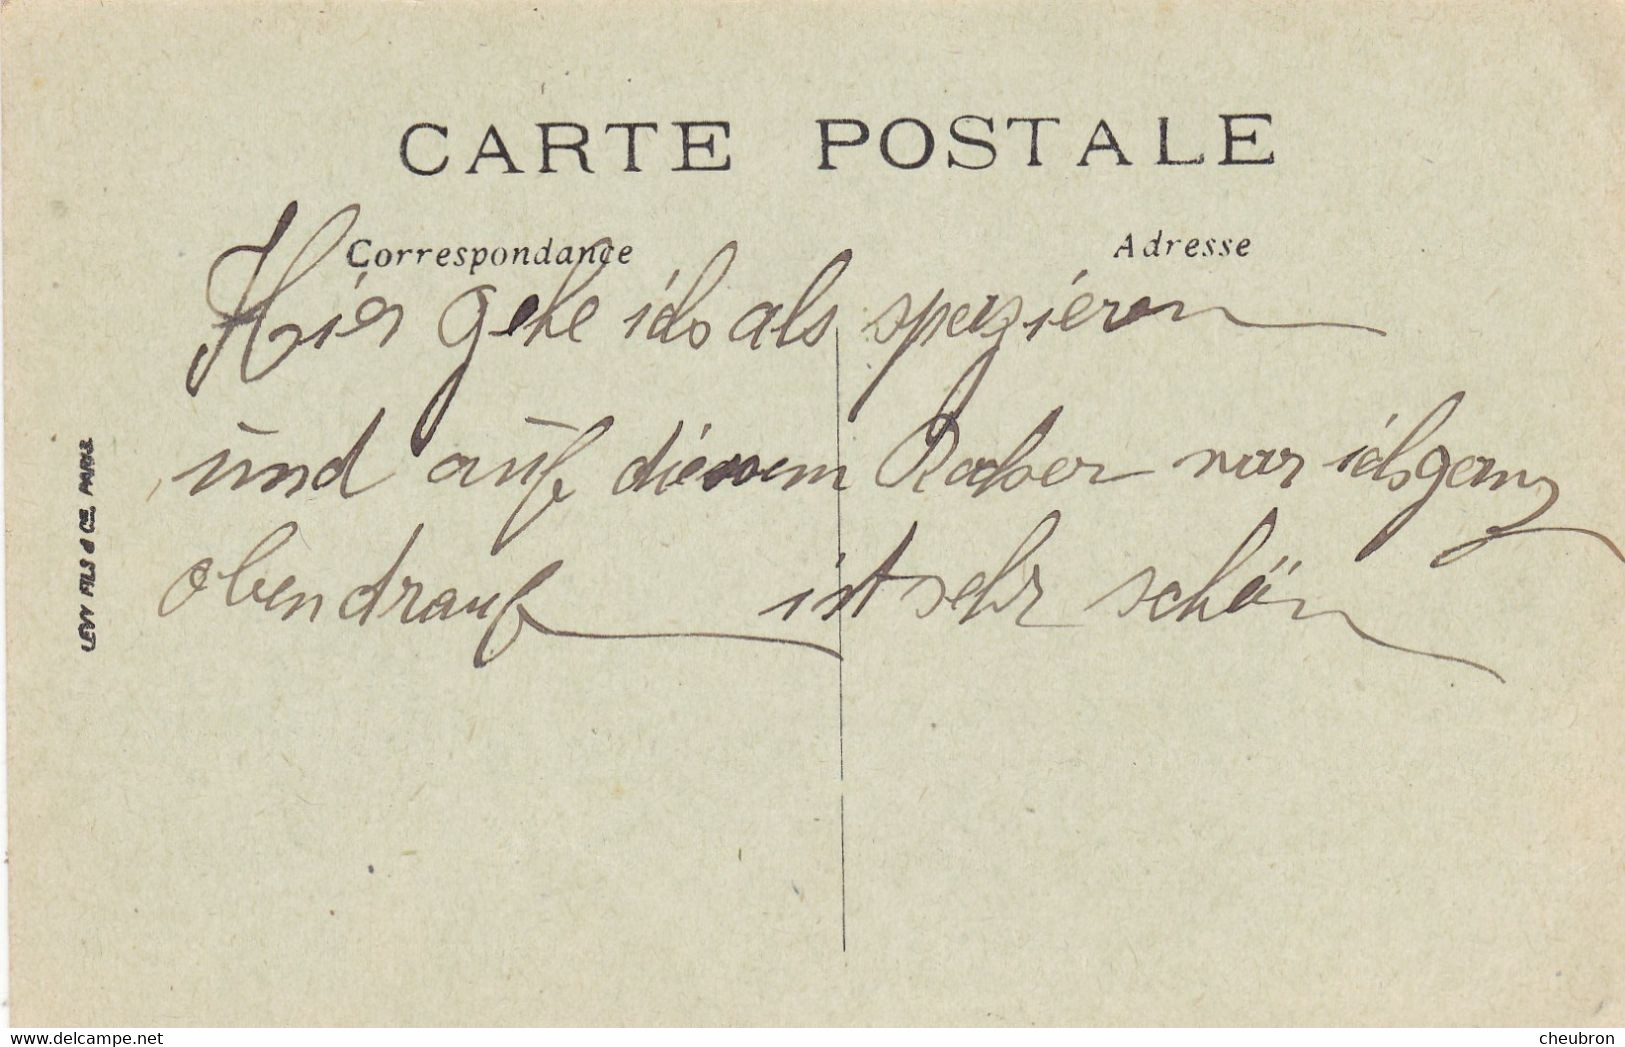 CARTE POSTALE
Correspondance
Adresse
Hier gehe ich als spazieren
und auf diesem war ich ganz
obendrauf ist sehr schön
LEVY FILS & Cie, PARIS
cheubron
delcampe.net